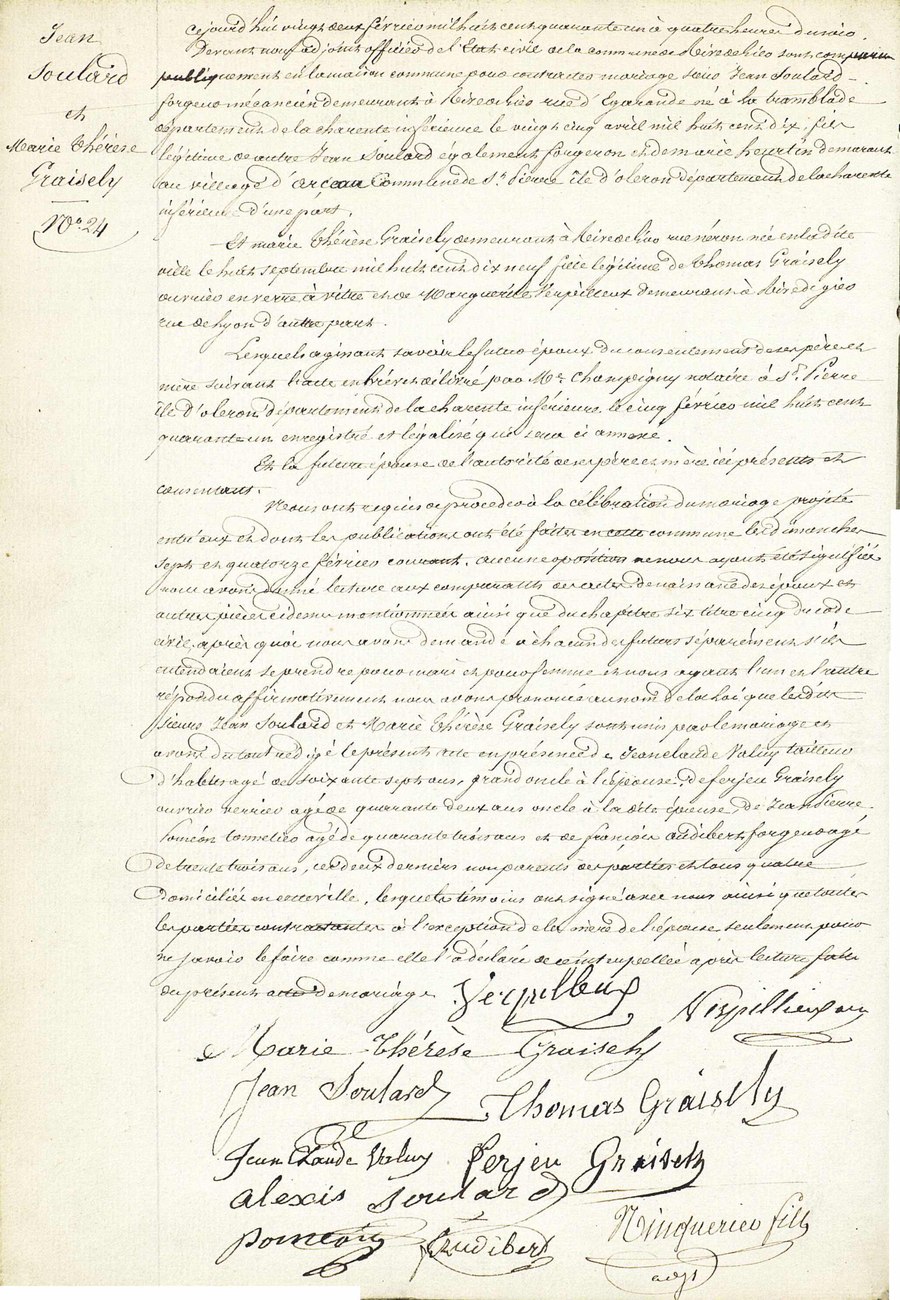 Jean
Soulard
et
Marie Thérèse
Graisely
No. 24
cejourd'hui vingt deux février mil huit cent quarante un à quatre heures du soir
Devant nous adjoint officier de l'Etat civil de la commune de Rive de gier sont comparu
publiquement en la maison commune pour contracter mariage sieur Jean Soulard
forgeur mécancien demeurant à Rive de gier rue d'Egarande né à la tramblade
département de la charente inférieure le vingt cinq avril mil huit cent dix, fils
légitime de autre Jean Soulard également forgeron et de marie heurtin demeurant
au village d'arceau Commune de St. Pierre île d'oleron département de la charente
inférieure d'une part.
Et marie Thérèse Graisely demeurant à Rive de gier rue néron née en la dite
ville le huit septembre mil huit cent dix neuf fille légitime de Thomas Graisely
ouvrier en verre à vitre et de Marguerite Verpilleux demeurant à Rive de gier
rue de Lyon d'autre part.
Lesquels agissant savoir le futur époux du consentement de ses père et
mère suivant l'acte en brevet délivré par Me. Champigny notaire à St. Pierre
île d'oleron département de la charente inférieure le cinq février mil huit cent
quarante un enregistré et légalisé qui sera ci annexé.
Et la future épouse de l'autorité de ses père et mère ici présents et
consentant.
Nous ont requis de procéder à la célébration du mariage projeté
entr'eux et dont les publications ont été faites en cette commune les dimanches
sept et quatorze février courant. aucune opposition ne nous ayant été signifiée
nous avons donné lecture aux comparants des actes de naissance des époux et
autres pièces cidessus mentionnées ainsi que du chapitre six titre cinq du code
civil, après quoi nous avons demandé à chacun des futurs séparément s'ils
entendaient se prendre pour mari et pour femme et nous ayant l'un et l'autre
répondu affirmativement nous avons prononcé au nom de la loi que lesdits
sieurs Jean Soulard et Marie Thérèse Graisely sont unis par le mariage et
avons du tout redigé le présent acte en présence de Jean claude Valuy tailleur
d'habits agé de soixante sept ans, grand oncle à l'épouse, de ferjeu Graisely
ouvrier verrier agé de quarante deux ans oncle à la dite épouse, de Jean Pierre
Poméon tonnelier agé de quarante trois ans et de françois audibert forgeur agé
de trente trois ans, ces deux derniers non parents des parties et tous quatre
domiciliés en cette ville, lesquels témoins ont signé avec nous ainsi que toutes
les parties contractantes à l'exception de la mère de l'épouse seulement pour
ne savoir le faire comme elle l'a déclaré de ce interpellée après lecture faite
du présent acte de mariage
Verpilleux
Marie Thérèse Graisely
Jean Soulard Thomas Graisely
Jean Claude Valuy ferjeu Graisely
alexis Soulard
pomeon Audibert
fils
adjt